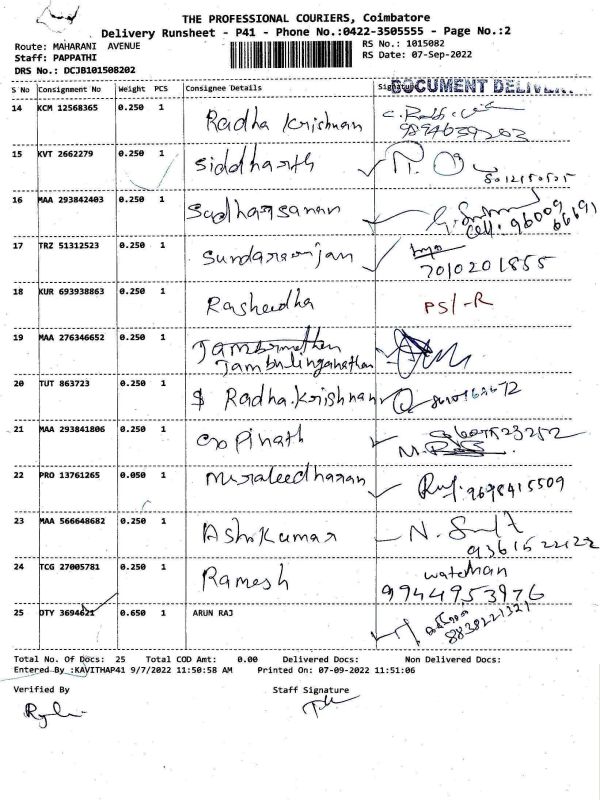 THE PROFESSIONAL COURIERS, Coimbatore
Delivery Runsheet - P41 - Phone No.:0422-3505555 - Page No.:2
Route: MAHARANI AVENUE RS No.: 1015082
Staff: PAPPATHI RS Date: 07-Sep-2022
DRS No.: DCJB101508202
DOCUMENT DELIVER
S No Consignment No Weight PCS Consignee Details Signature
14 KCM 12568365 0.250 1 Radha Krishnan
15 KVT 2662279 0.250 1 Siddharth
16 MAA 293842403 0.250 1 Sudharsanan
Cell: 96009
66691
17 TRZ 51312523 0.250 1 Sundararajan
7010201855
18 KUR 693938863 0.250 1 Rasheedha PS/-R
19 MAA 276346652 0.250 1
Jambulinganathan
20 TUT 863723 0.250 1 Radha.Krishnan
21 MAA 293841806 0.250 1 Gopinath
22 PRO 13761265 0.050 1 Muraleedharan 9698415509
23 MAA 566648682 0.250 1 Ashikumar
24 TCG 27005781 0.250 1 Ramesh watchman
9944953976
25 DTY 3694621 0.650 1 ARUN RAJ
8838221321
Total No. Of Docs: 25 Total COD Amt: 0.00 Delivered Docs: Non Delivered Docs:
Entered By :KAVITHAP41 9/7/2022 11:50:58 AM Printed On: 07-09-2022 11:51:06
Verified By Staff Signature